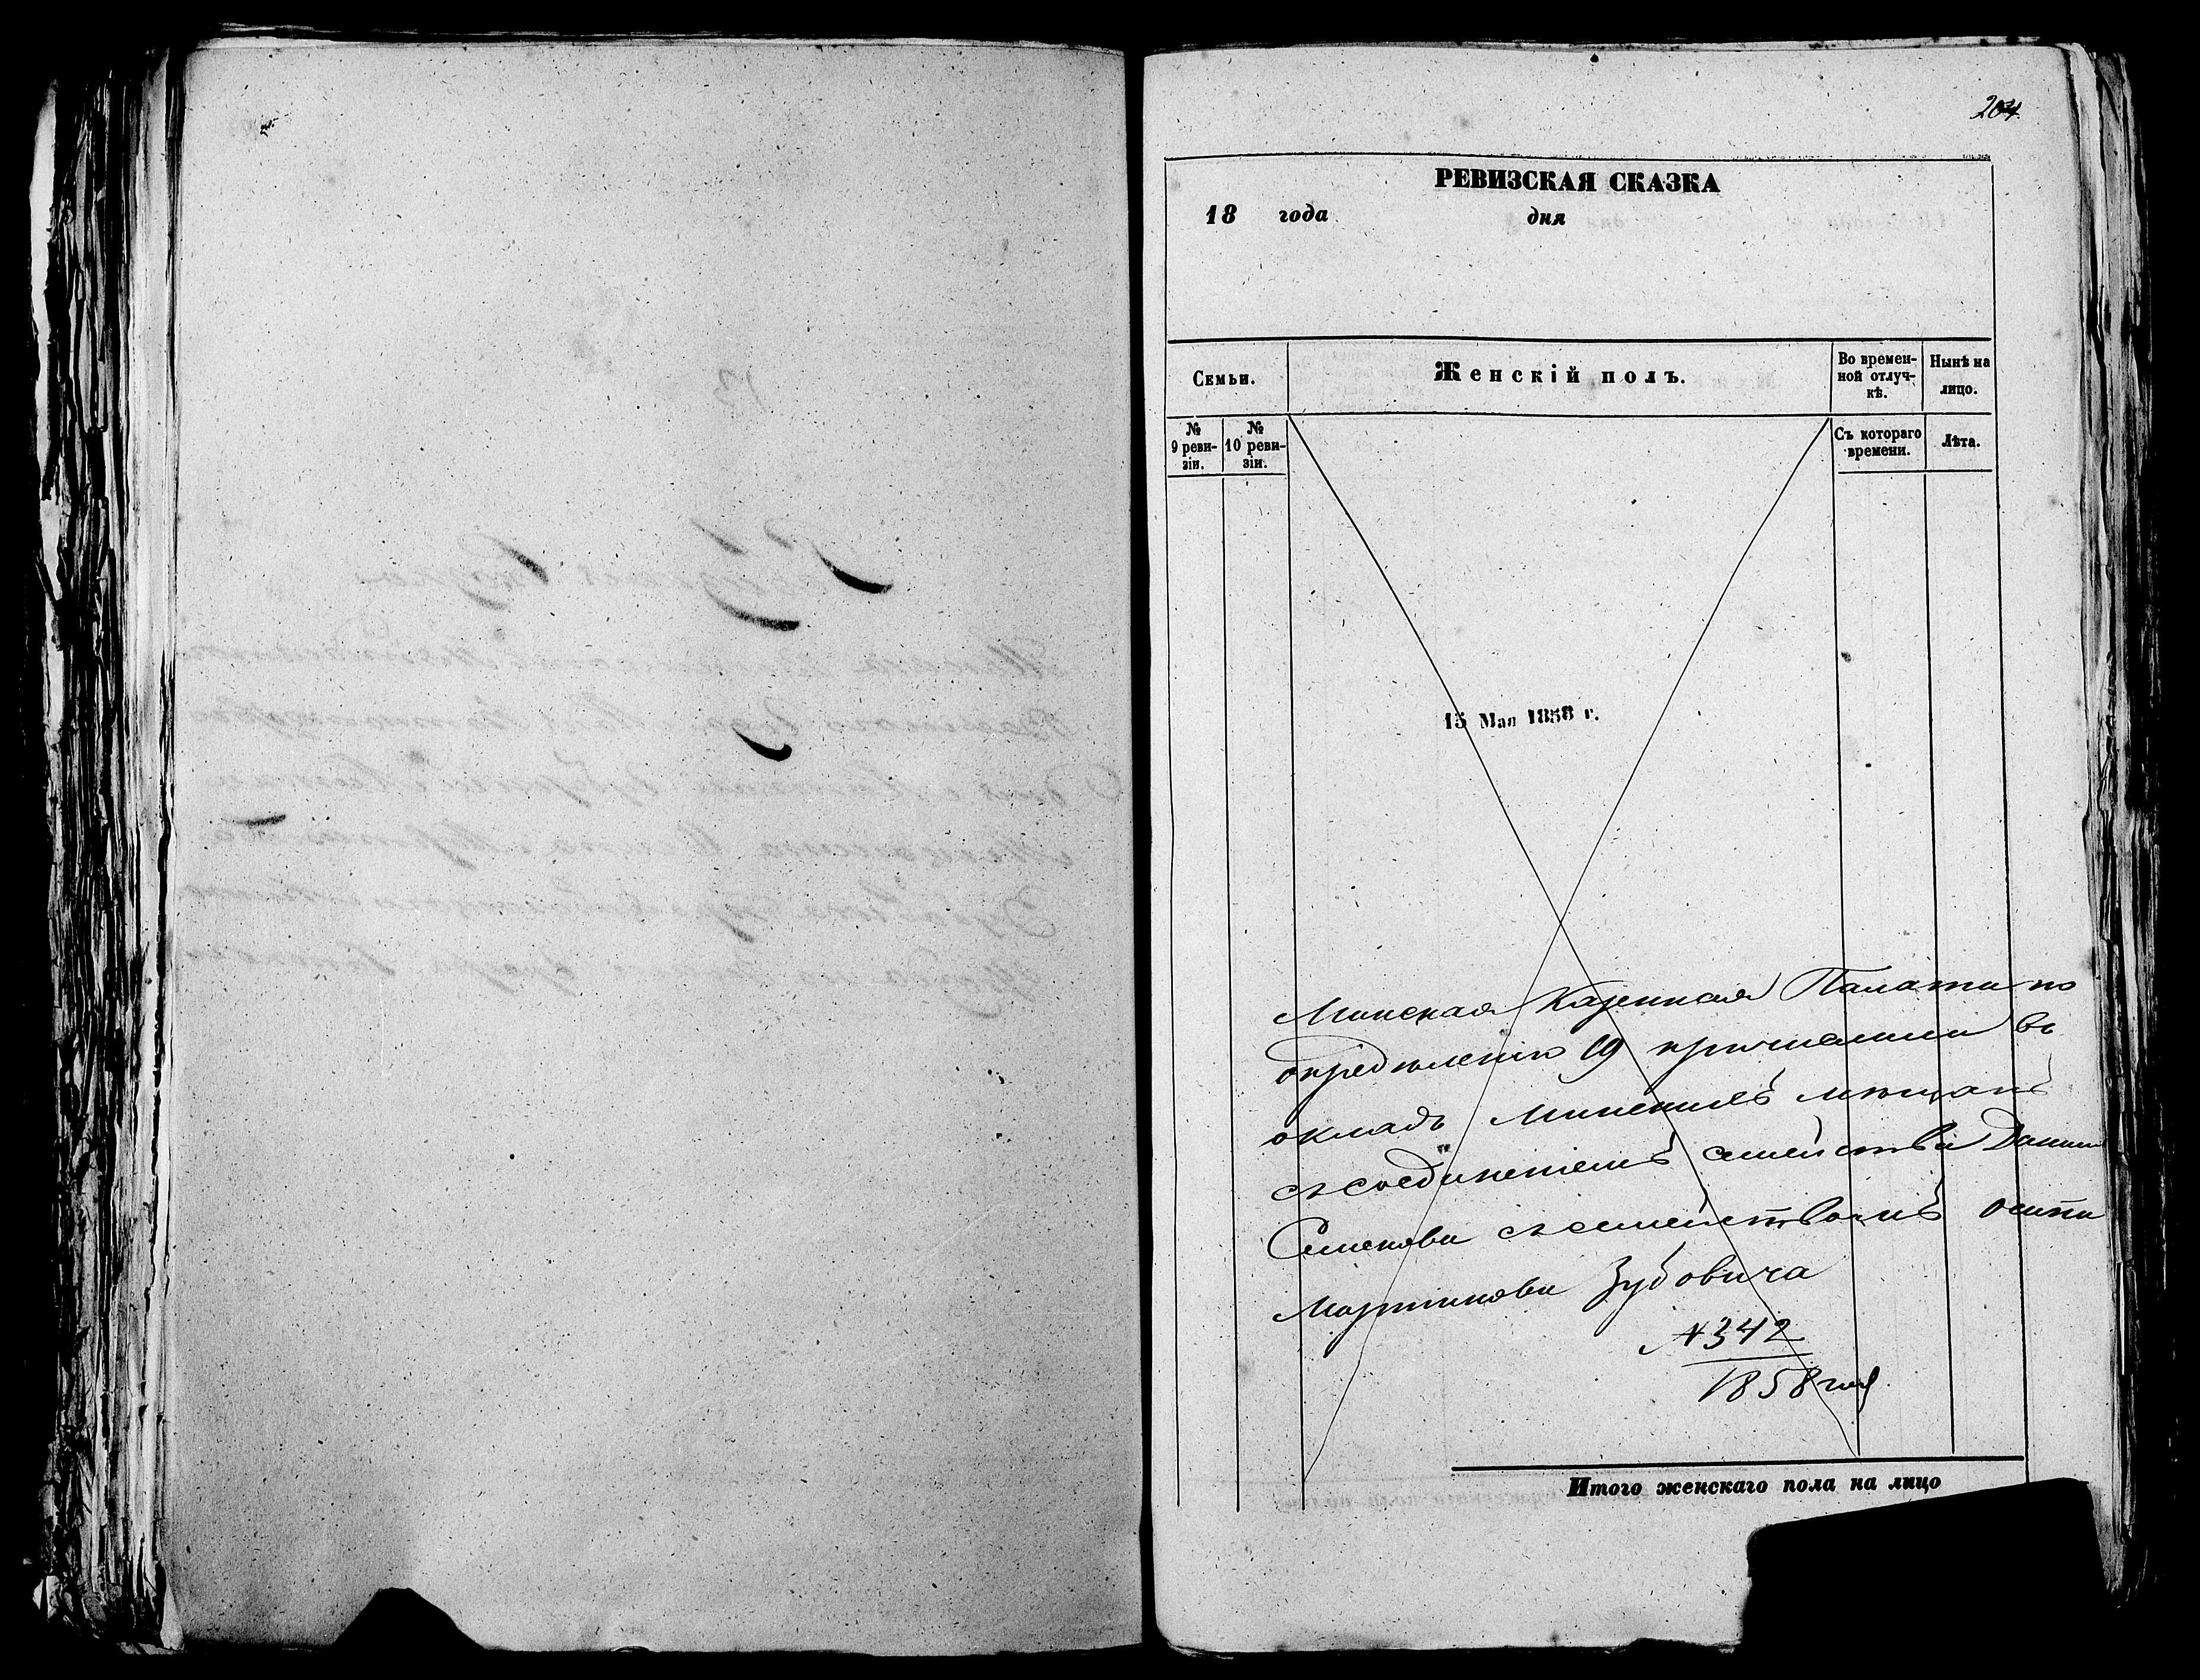 204
РЕВИЗСКАЯ СКАЗКА
18 года дня
Семьи.
Женскій полъ.
Во времен-
ной отлуч-
кѣ.
Нынѣ на
лицо.
№
9 реви-
зіи.
№
10 реви-
зіи.
Съ котораго
времени.
Лѣта.
15 Мая 1858 г.
Минская Казенная Палата по
опредѣленію 19 причислила въ
окладъ Минскихъ мѣщанъ
съ соединеніемъ семейства
Семенова съ семействомъ Осипа
Мартинова Зубовича
№ 342
1858 год
Итого женскаго пола на лицо